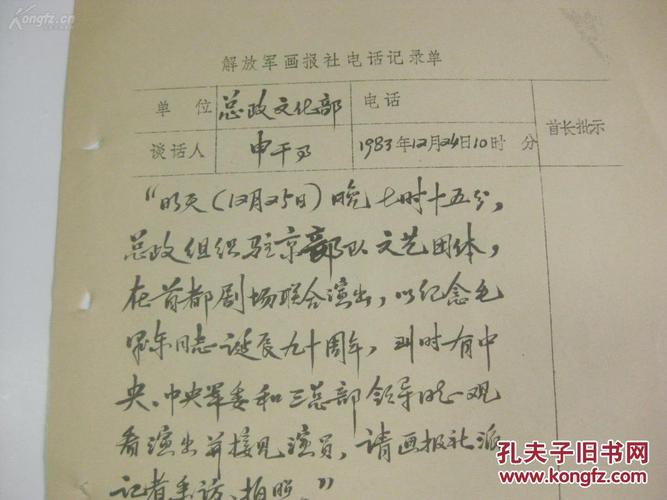 Kongfz.cn
解放军画报社电话记录单
单 位 总政文化部 电话 首长批示
谈话人 申干事 1983年12月24日10时 分
“明天(12月25日)晚七时十五分,
总政组织驻京部队文艺团体,
在首都剧场联合演出,以纪念毛
泽东同志诞辰九十周年,到时有中
央、中央军委和三总部领导同志观
看演出并接见演员,请画报社派
记者采访、拍照。”
孔夫子旧书网
KONGFZ.COM